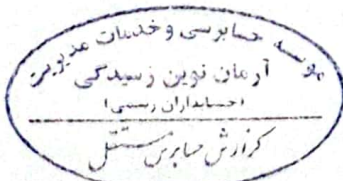 موسسه حسابرسی و خدمات مدیریت
آرمان نوین رسیدگی
(حسابداران رسمی)
گزارش حسابرس مستقل